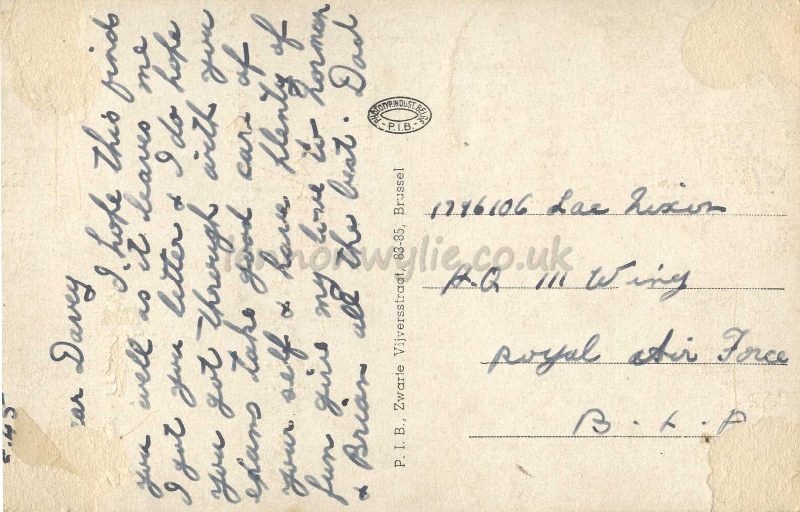 5.45
ear Davey
I hope this finds
you well as it leaves me
I got you letter & I do hope
you got through with you
exams take good care of
your self & have plenty of
fun give my love to Norman
& Brian all the best. Dad
P.I.B., Zwarte Vijversstraat, 83-85, Brussel
- P.I.B. -
1796106 Lac Nixon
H.Q 111 Wing
Royal Air Force
B. L. A
lennonwylie.co.uk